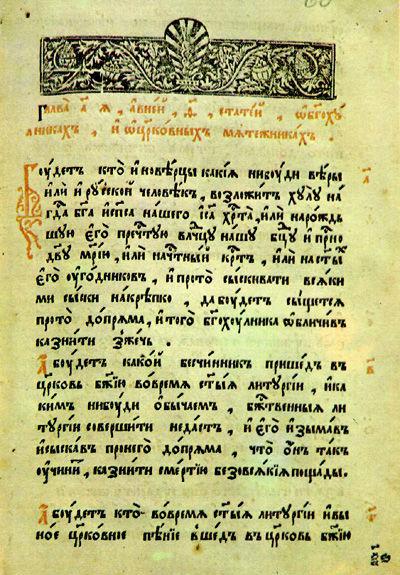 Глава а҃ я҃, а в ней, ѳ҃, статей, ѡ бг҃охꙋ
лникахъ, и ѡ цр҃ковныхъ мѧтежникахъ.
Боудетъ кто иновѣрцы какїѧ нибоуди вѣры
или и роуской человѣкъ, возложитъ хꙋлꙋ на
гдⷭ҇а бг҃а и сп҃са нашего іс҃а хрⷭ҇та, или на рождь
шꙋю его̀ прⷱ҇тꙋю влⷣчцꙋ нашꙋ бцⷣꙋ и прⷭ҇но
дв҃ꙋ мр҃їю, или на чⷭ҇тныи крⷭ҇тъ, или на ст҃ыхъ
его̀ оугодниковъ, и про то̀ сыскивати всѧки
ми сыски накрѣпко, да боудетъ сыщетсѧ
про то̀ допрѧма, и того̀ бг҃охоулника ѡбличивъ
казнити зжечь.
а҃ Боудетъ какой бесчинникъ пришедъ въ
цр҃ковь бж҃їю во времѧ ст҃ыѧ литꙋргїи, и ка
кимъ нибоуди обычаемъ, бжⷭ҇твенныѧ ли
тꙋргїи совершити не дастъ, и его̀ изымавъ
и сыскавъ про него̀ допрѧма, что онъ такъ
оучинитъ, казнити смертїю безо всѧкїѧ пощады.
а҃ Боудетъ кто̀ во времѧ ст҃ыѧ литꙋргїи и в ы
ное цр҃ковное пѣнїе вшедъ въ цр҃ковь бж҃їю
а҃
в҃